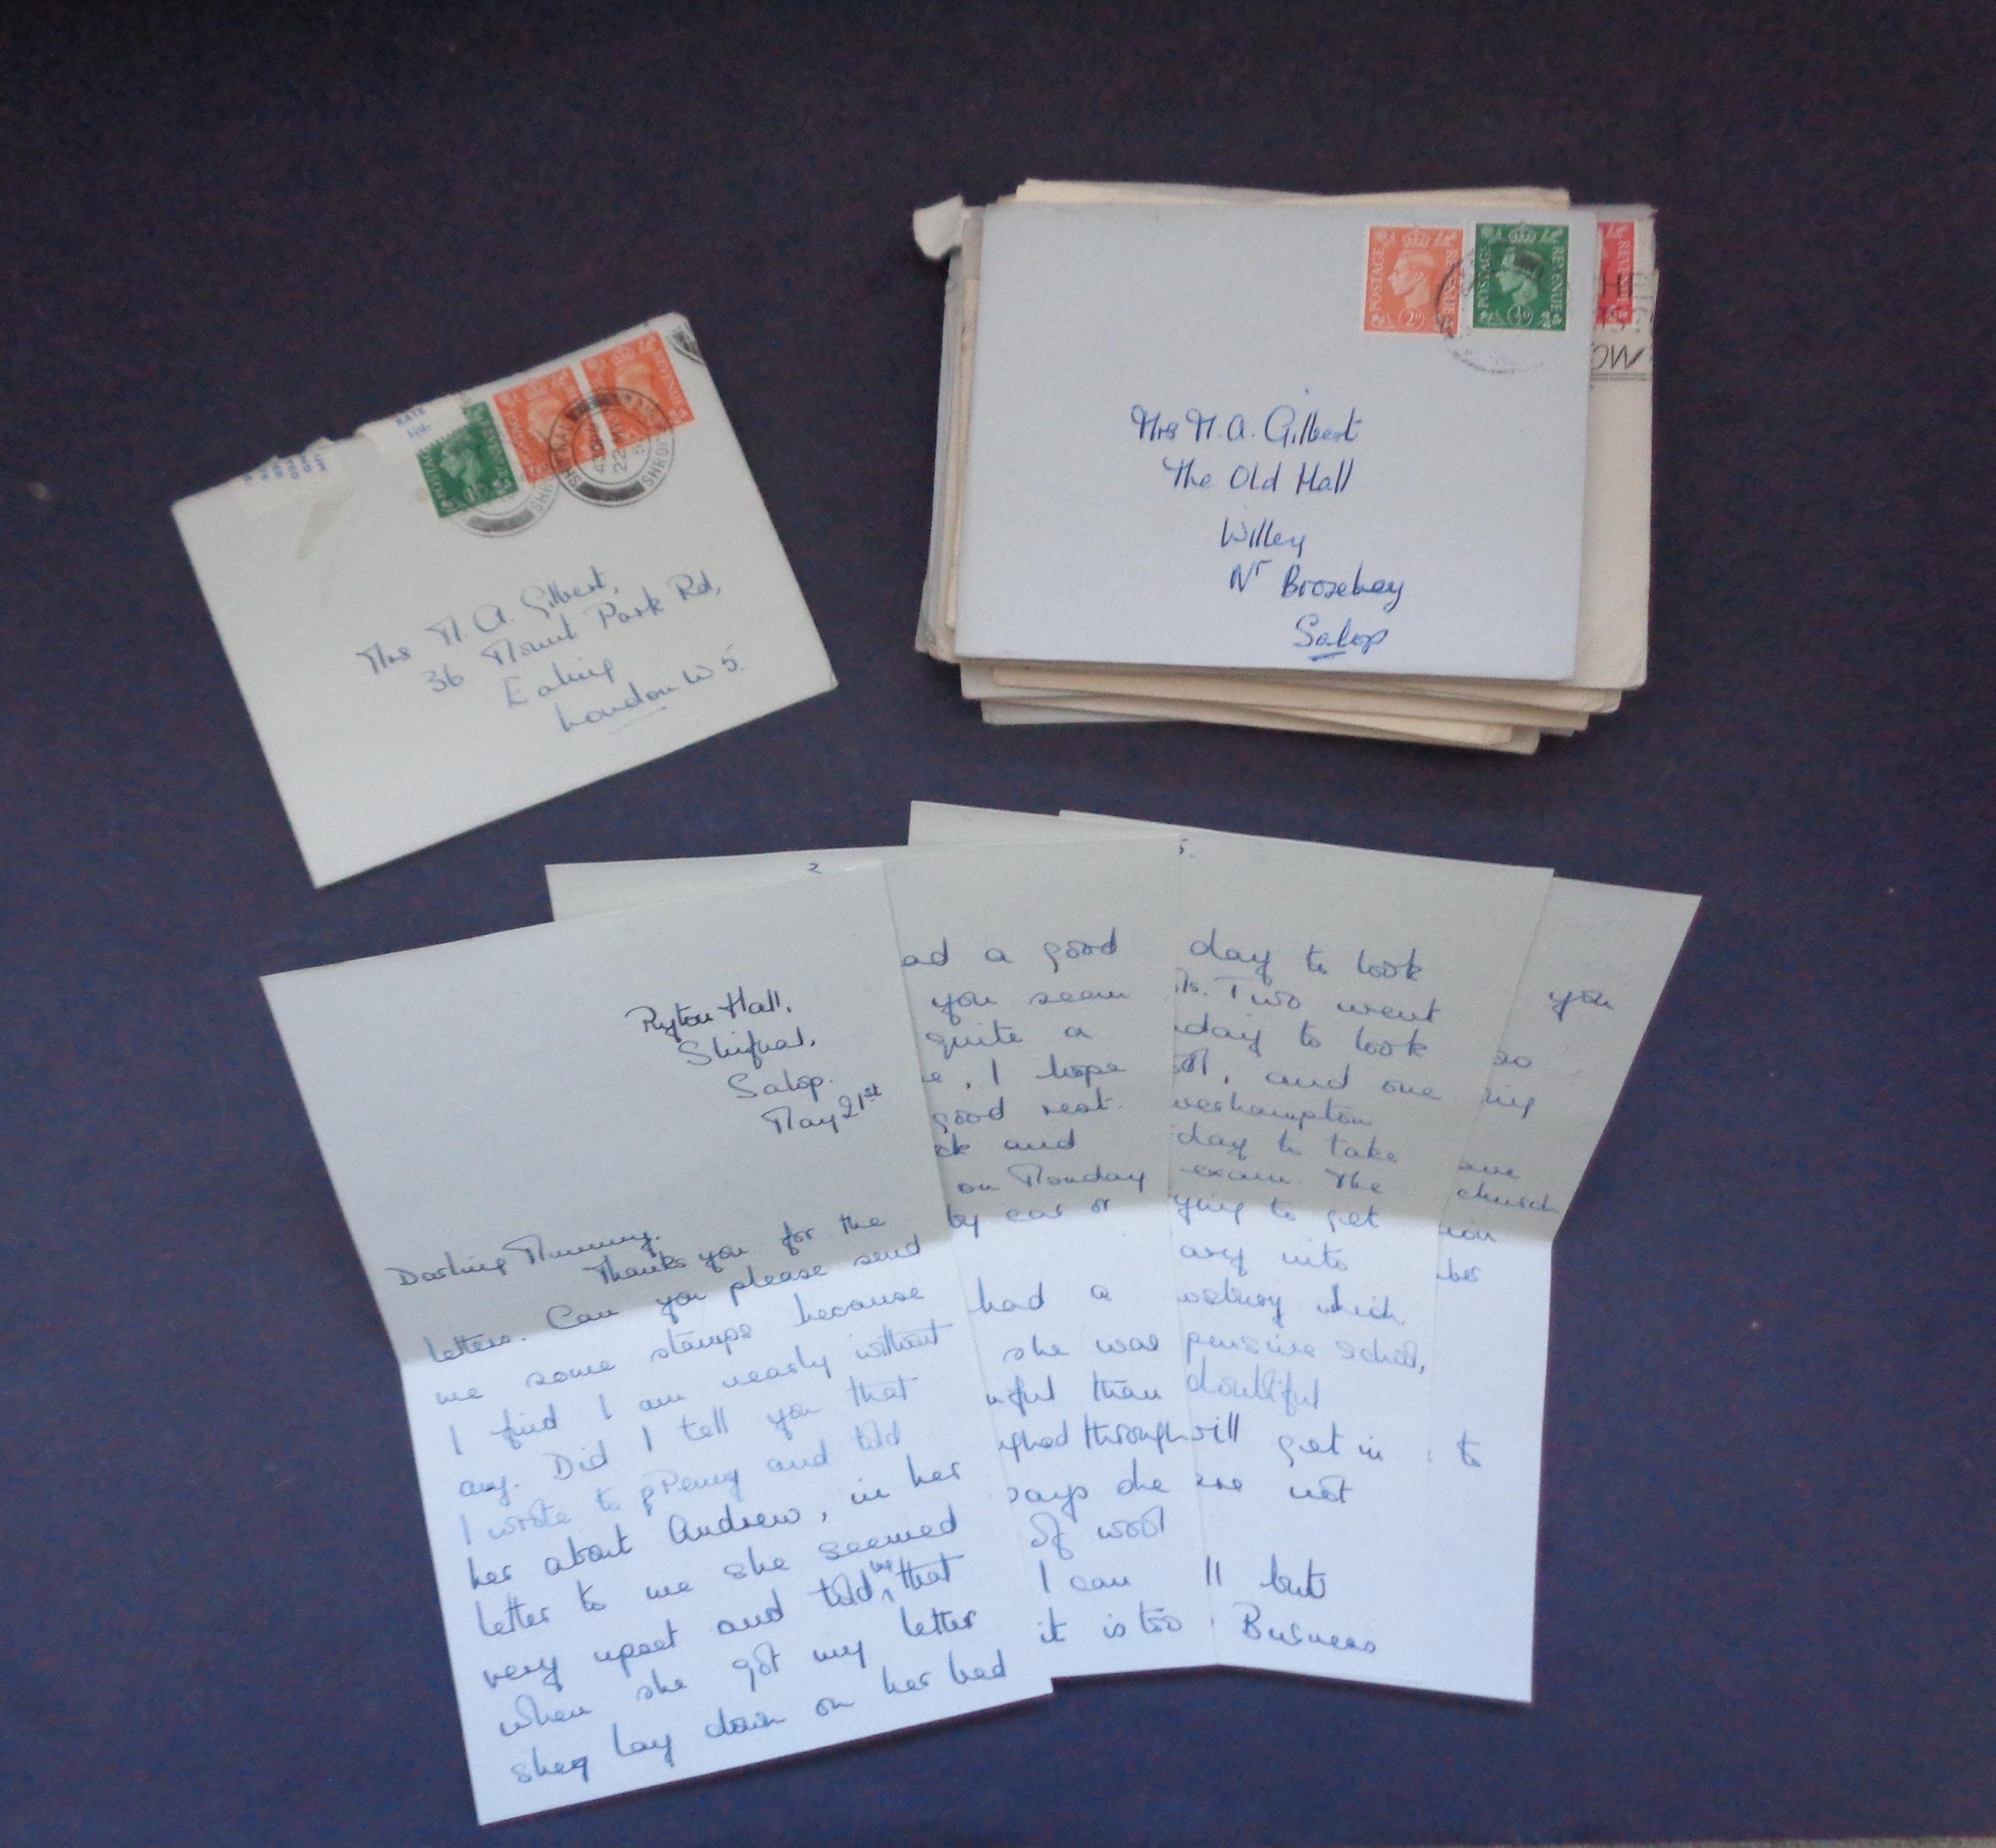 Mrs M. A. Gilbert,
36 Mount Park Rd,
Ealing
London W5.
POSTAGE REVENUE
2D
POSTAGE REVENUE
½D
REVENUE
Mrs M. A. Gilbert
The Old Hall
Willey
Nr Broseley
Salop
Ryton Hall,
Shifnal,
Salop.
May 21st
Darling Mummy.
Thank you for the
letters. Can you please send
me some stamps because
I find I am nearly without
any. Did I tell you that
I wrote to Penny and told
her about Andrew, in her
letter to me she seemed
very upset and told me that
when she got my letter
she lay down on her bed
2
ad a good
you seem
quite a
e, I hope
good rest.
ck and
on Monday
by car or
had a
she was
ful than
ughed through
says she
of wool
I can
it is too
5.
day to look
ls. Two went
day to look
ol, and one
verhampton
day to take
exam. The
ying to get
ary into
wsbury which
pensive school,
doubtful
will get in
are not
ll but
Business
you
so
ing
ave
church
ion
ber
to